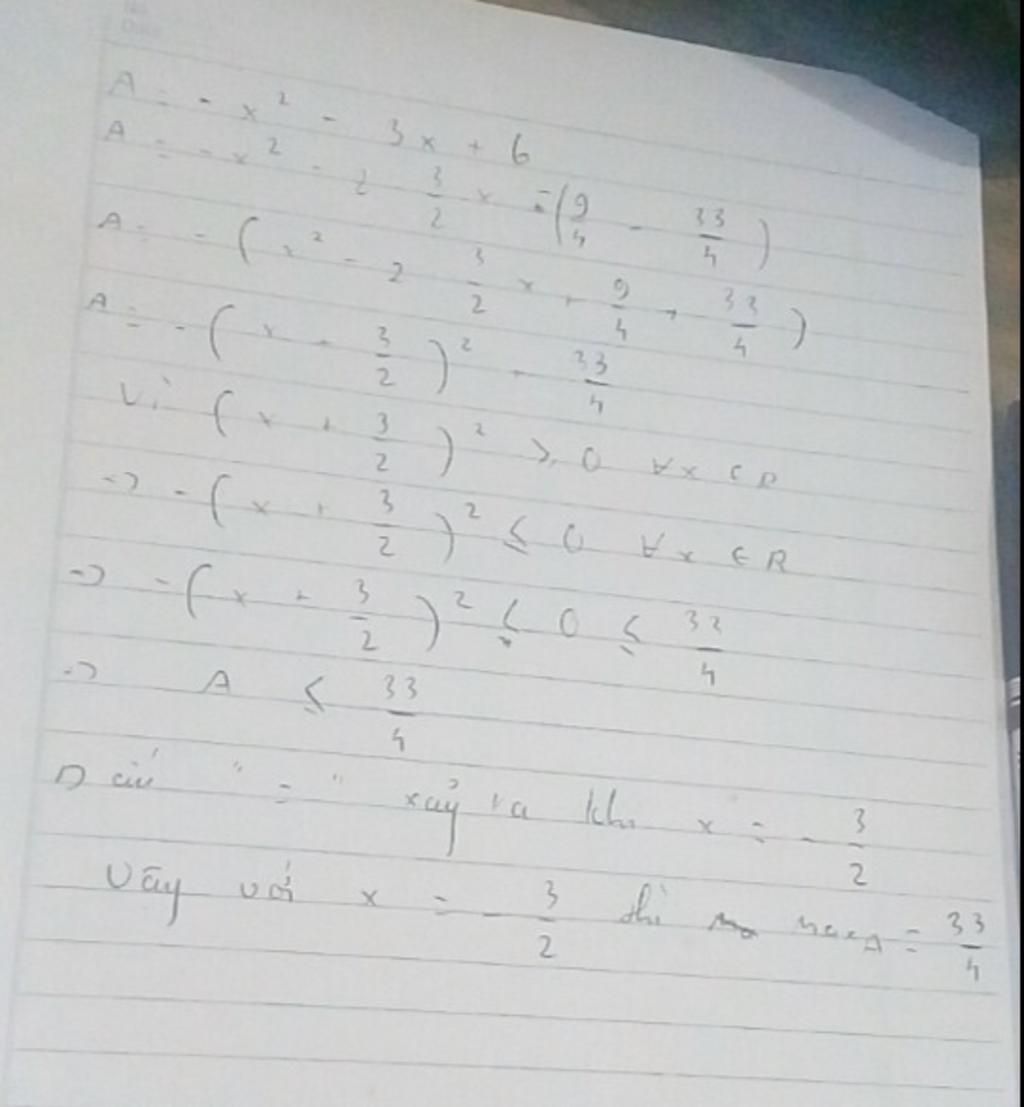 A = - x² - 3x + 6
A = - x² - 2 3/2 x - (9/4 - 33/4)
A = - (x² - 2 3/2 x + 9/4 + 33/4)
A = - (x - 3/2)² - 33/4
Vì (x + 3/2)² ≥ 0 ∀x ∈ R
=> - (x + 3/2)² ≤ 0 ∀x ∈ R
=> - (x + 3/2)² ≤ 0 ≤ 33/4
=> A ≤ 33/4
Dấu " = " xảy ra khi x = - 3/2
Vậy với x = - 3/2 thì maxA = 33/4